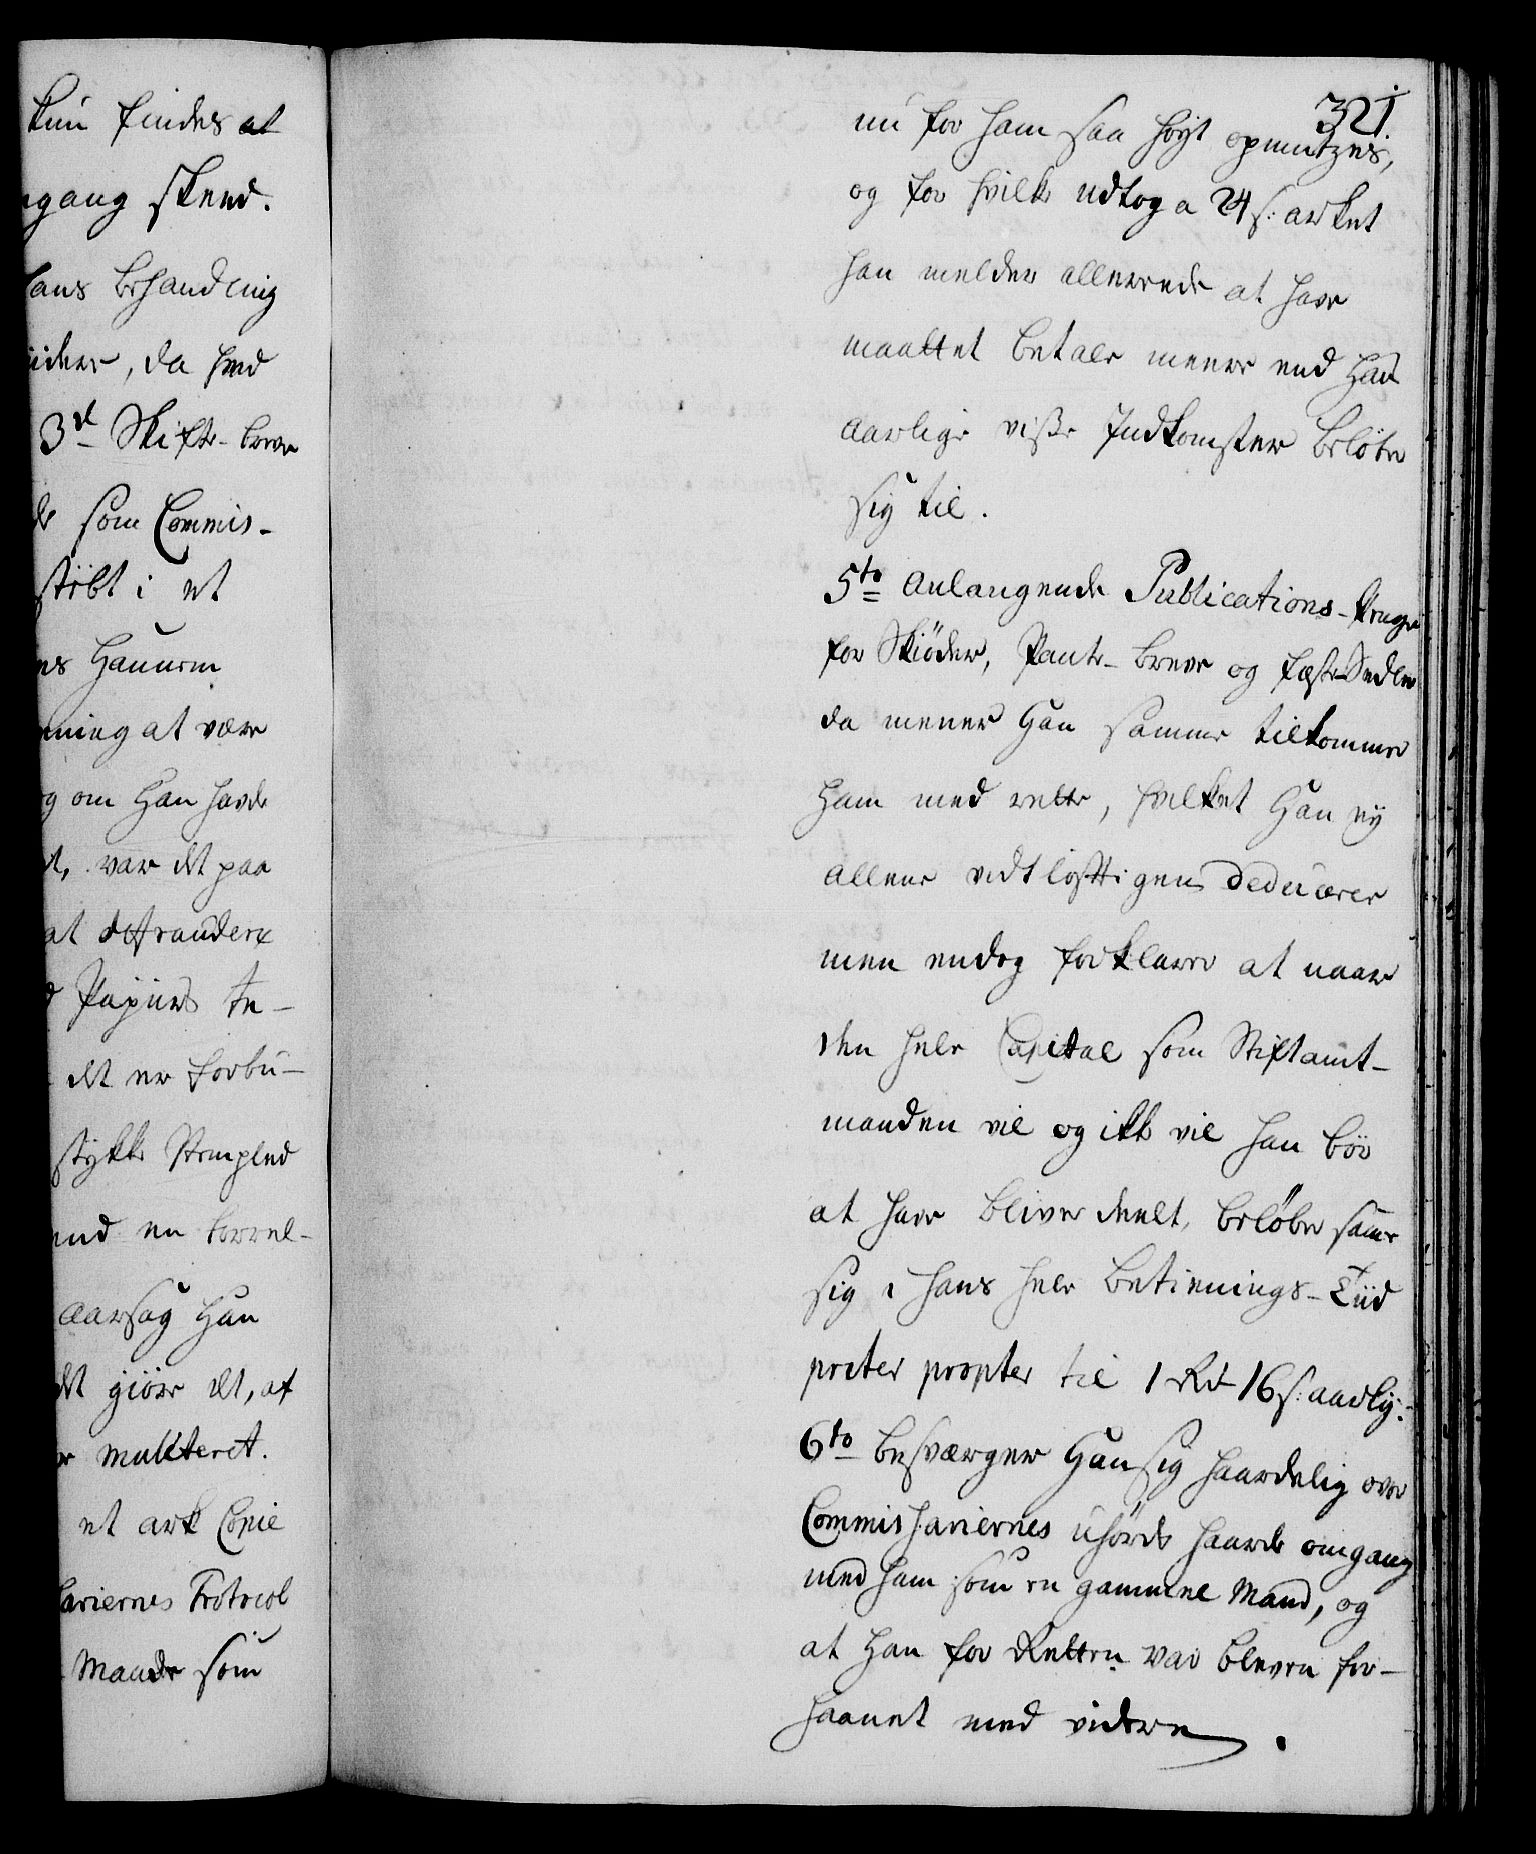 kun findes at
gang skeed.
hans Behandling
ider, da hvad
3d Skifte-breve
som Commis-
stibt i et
Hannem
ning at være
og om Han havde
t, var det paa
at defraudere
Papiirs te-
det er forbu-
stykke Stemplед
end en Correl-
aarsag Han
det giøre det, at
mulkteret.
et ark Copie
sariernes Protocol
Maade som
321.
nu for ham saa høyt opmutzes,
og for hvilke udtog a 24 s: arket
han melder allerede at have
maattet betale meere end Hans
aarlige visse Indkomster beløber
sig til.
5to Anlangende Publications-Penge
for Skiøder, Pante-breve og fæste-Sedler
da mener Han samme tilkommer
Ham med rette, hvilket Han ey
alleene vidtløftigen deducerer
men endog forklarer at naar
den hele Capital som Stiftamt-
manden vil og ikke vil han bør
at have bliver deelt, beløber samme
sig i hans hele Betienings-Tiid
preter propter til 1 Rd 16 s: aarlig:
6to besværger Han sig haardelig over
Commissariernes uhørde haarde omgang
med ham som en gammel Mand, og
at Han for Retten var bleven for-
haanet med videre.